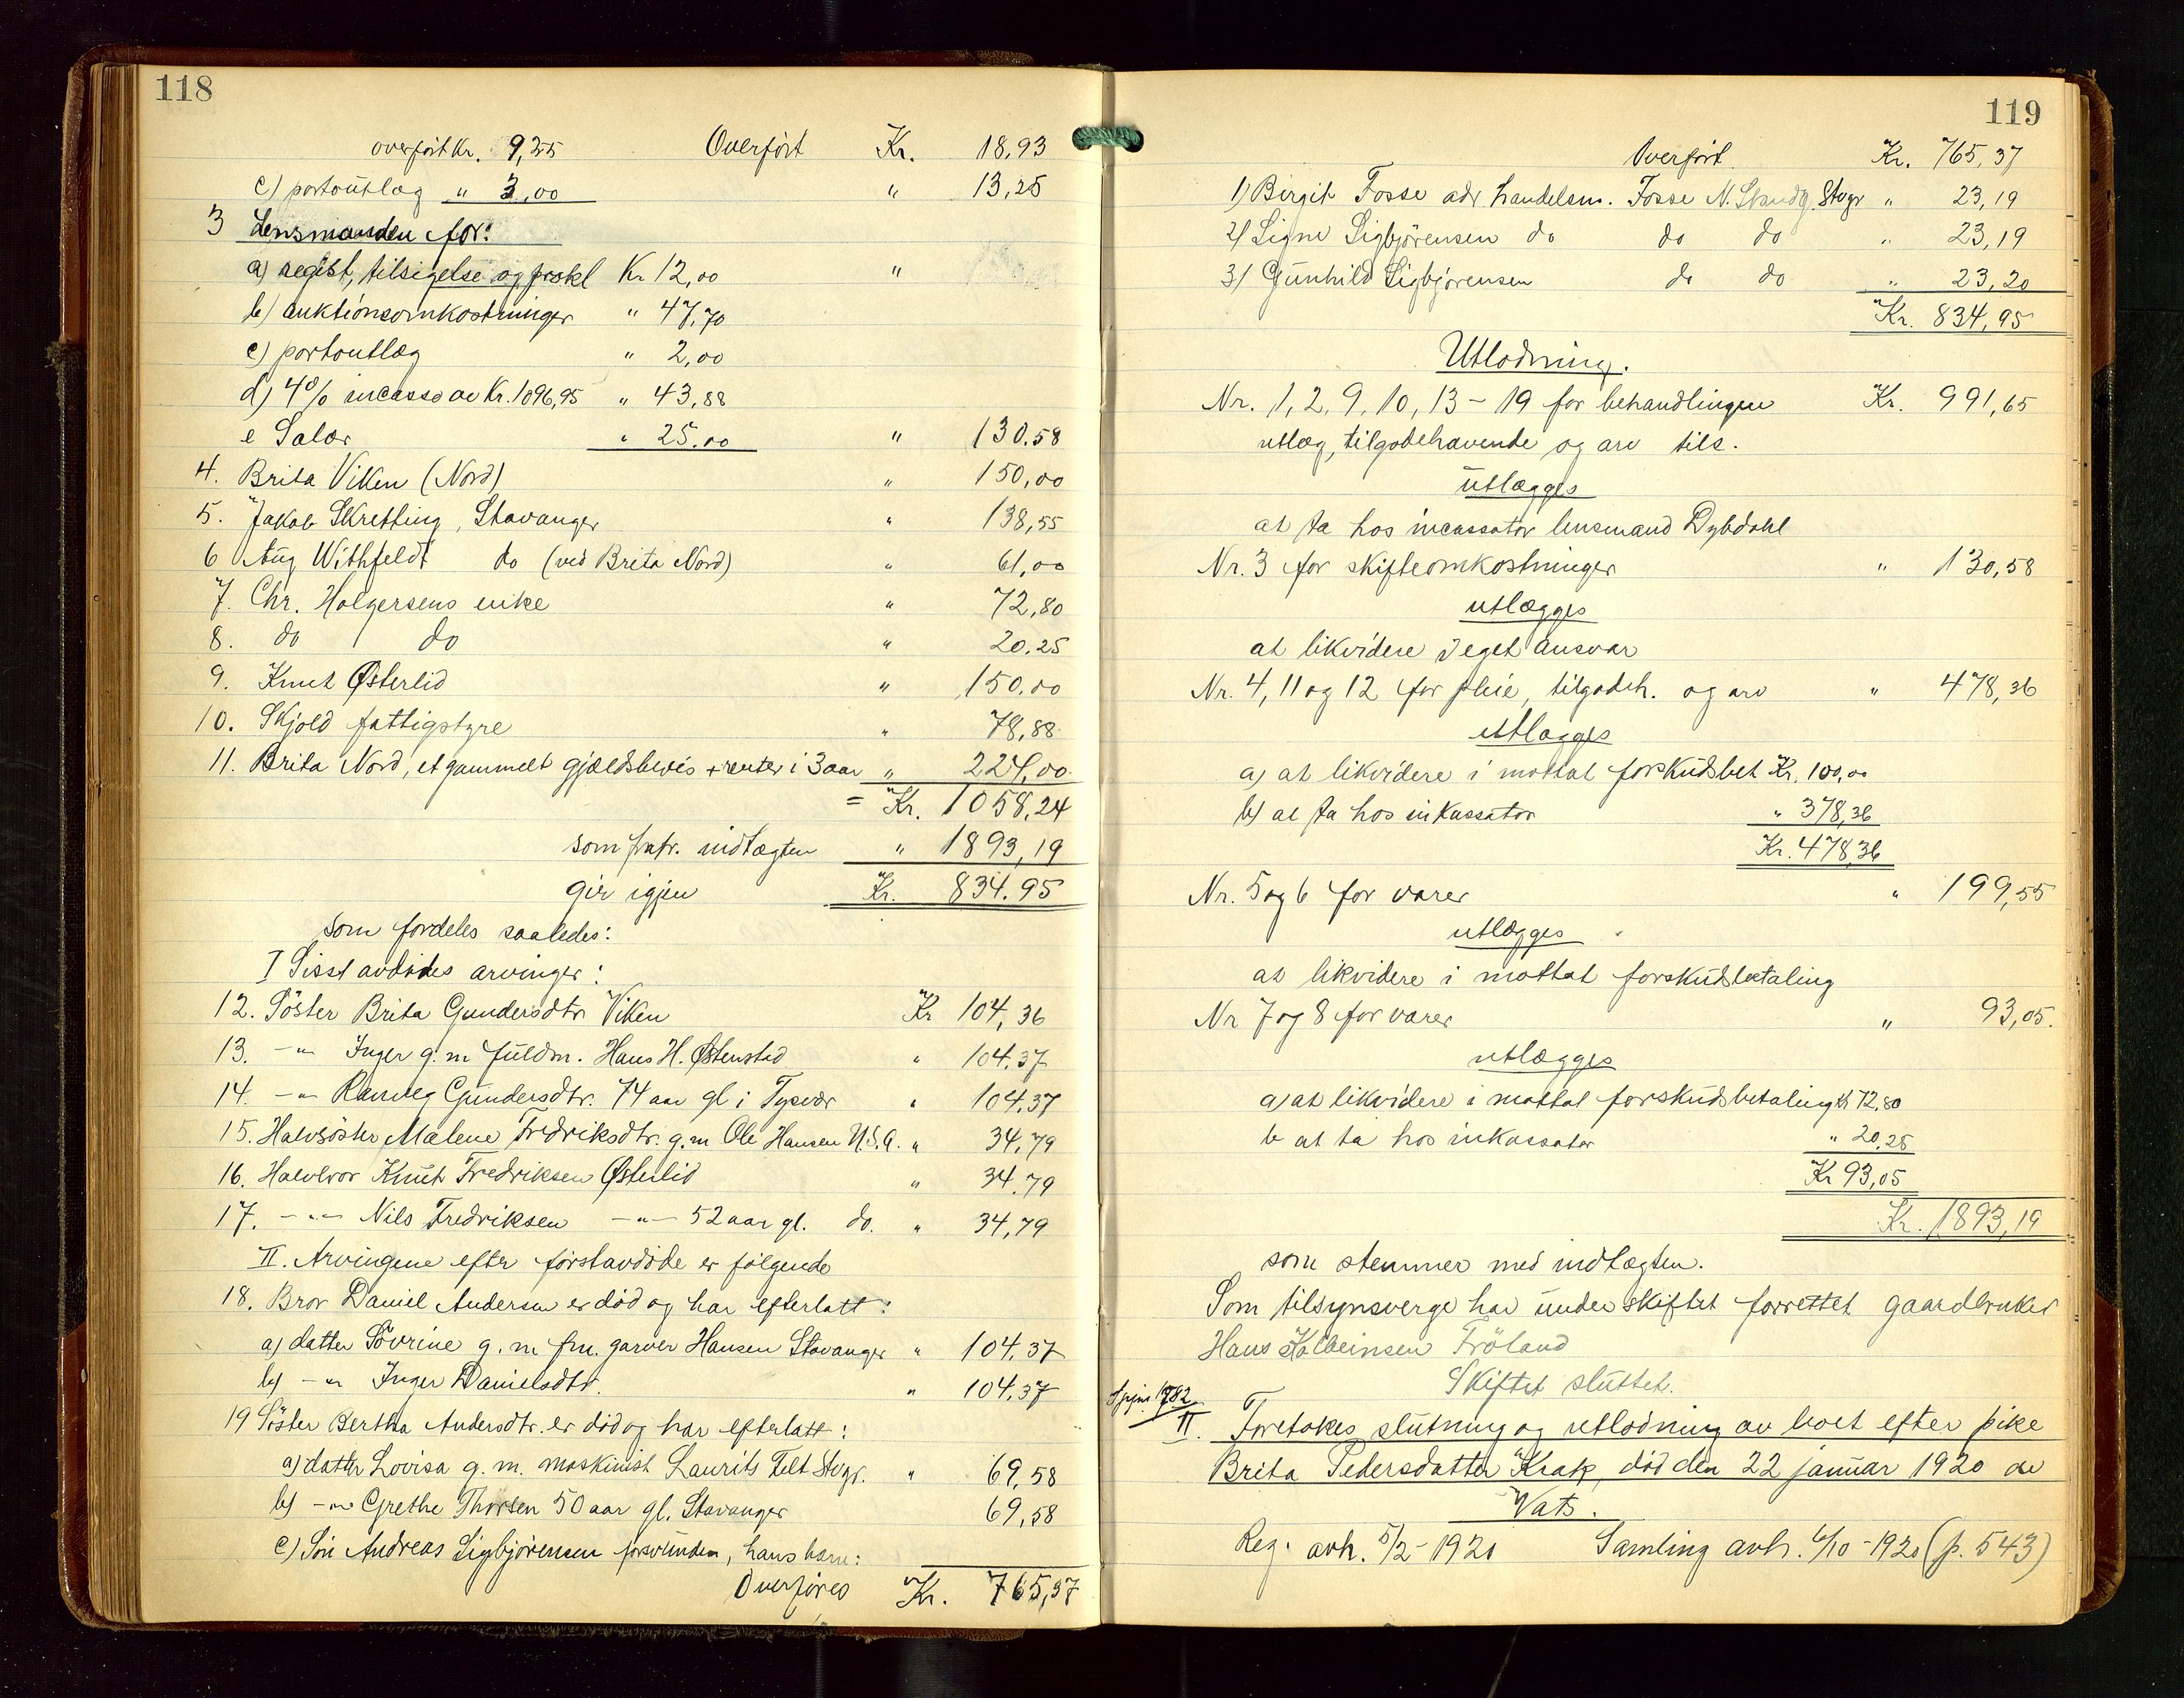 118
overført Kr. 9,25 Overført Kr. 18,93
c) portoutlæg " 3,00 " 13,25
3 Lensmanden for:
a) regist, tilsigelse og prokl Kr 12,00 "
b) auktionsomkostninger " 47,70
c) portoutlæg " 2,00
d) 4% incasso av Kr. 1096,95 " 43,88
e Salær " 25.00 " 130.58
4. Brita Viken (Nord) " 150,00
5. Jakob Skretting, Stavanger " 138,55
6 Aug Withfeldt do (ved Brita Nord) " 61,00
7. Chr. Holgersens enke " 72,80
8. do do " 20.25
9. Knut Østerlid " 150,00
10. Skjold fattigstyre " 78,88
11. Brita Nord, et gammelt gjældsbevis + renter i 3 aar " 224,00
= Kr. 1058,24
som fratr. indtægten " 1893,19
gir igjen Kr. 834.95
som fordeles saaledes:
I Sisst avdødes arvinger:
12. Søster Brita Gundersdtr Viken Kr 104,36
13. -"- Inger g. m fuldm. Hans H. Østenstad " 104.37
14. -"- Ranveg Gundersdtr. 74 aar gl i Tysvær " 104,37
15. Halvsøster Malene Fredriksdtr. g. m Ole Hansen U.S.A. " 34,79
16. Halvbror Knut Fredriksen Østerlid " 34.79
17. -"- Nils Fredriksen -"- 52 aar gl. do. " 34,79
II. Arvingene efter førstavdøde er følgende
18. Bror Daniel Andersen er død og har efterlatt:
a) datter Sovrine g. m fm. garver Hansen Stavanger " 104,37
b) -"- Inger Danielsdtr. " 104,37
19 Søster Bertha Andersdtr. er død og har efterlatt:
a) datter Lovisa g. m. maskinist Laurits Telt Stvgr. " 69,58
b) -"- Grethe Thorsen 50 aar gl. Stavanger 69,58
c) Søn Andreas Sigbjørensen forsvunden, hans barn:
Overføres Kr. 765,37
119
Overført Kr. 765,37
1) Birgit Fosse adr handelsm. Fosse N. Strandg. Stvgr " 23,19
2) Signe Sigbjørensen do do do " 23,19
3) Gunhild Sigbjørensen do do " 23,20
Kr. 834,95
Utlodning.
Nr. 1, 2, 9, 10, 13 - 19 for behandlingen Kr. 991,65
utlæg, tilgodehavende og arv tils.
utlægges
at ta hos incassator lensmand Dybdahl
Nr. 3 for skifteomkostninger " 130,58
utlægges
at likvidere i eget ansvar
Nr. 4, 11 og 12 for pleie, tilgodeh. og arv " 478,36
utlægges
a) at likvidere i mottat forskudsbet Kr. 100,00
b) at ta hos inkassator " 378,36
Kr. 478,36
Nr. 5 og 6 for varer " 199,55
utlægges
at likvidere i mottat forskudsbetaling
Nr 7 og 8 for varer " 93,05.
utlægges
a) at likvidere i mottat forskudsbetaling Kr 72,80
b at ta hos inkassator " 20,25
Kr 93,05
Kr. 1893,19
som stemmer med indtægten.
Som tilsynsverge har under skiftet forrettet gaardbruker
Hans Kolbeinsen Frøland
Skiftet sluttet.
II. Foretokes slutning og utlodning av boet efter pike
Brita Pedersdatter Krak, død den 22 januar 1920 av
Vats.
Reg. avh. 5/2 - 1920 Samling avh. 6/10 - 1920 (p. 543)